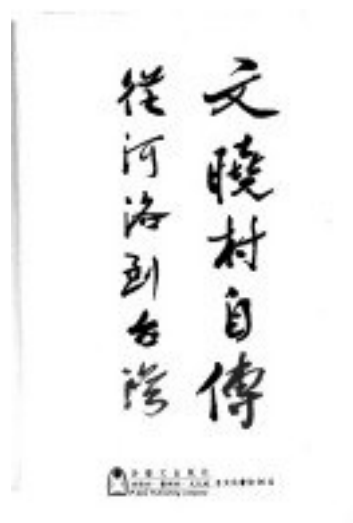 文曉村自傳
從河洛到台灣